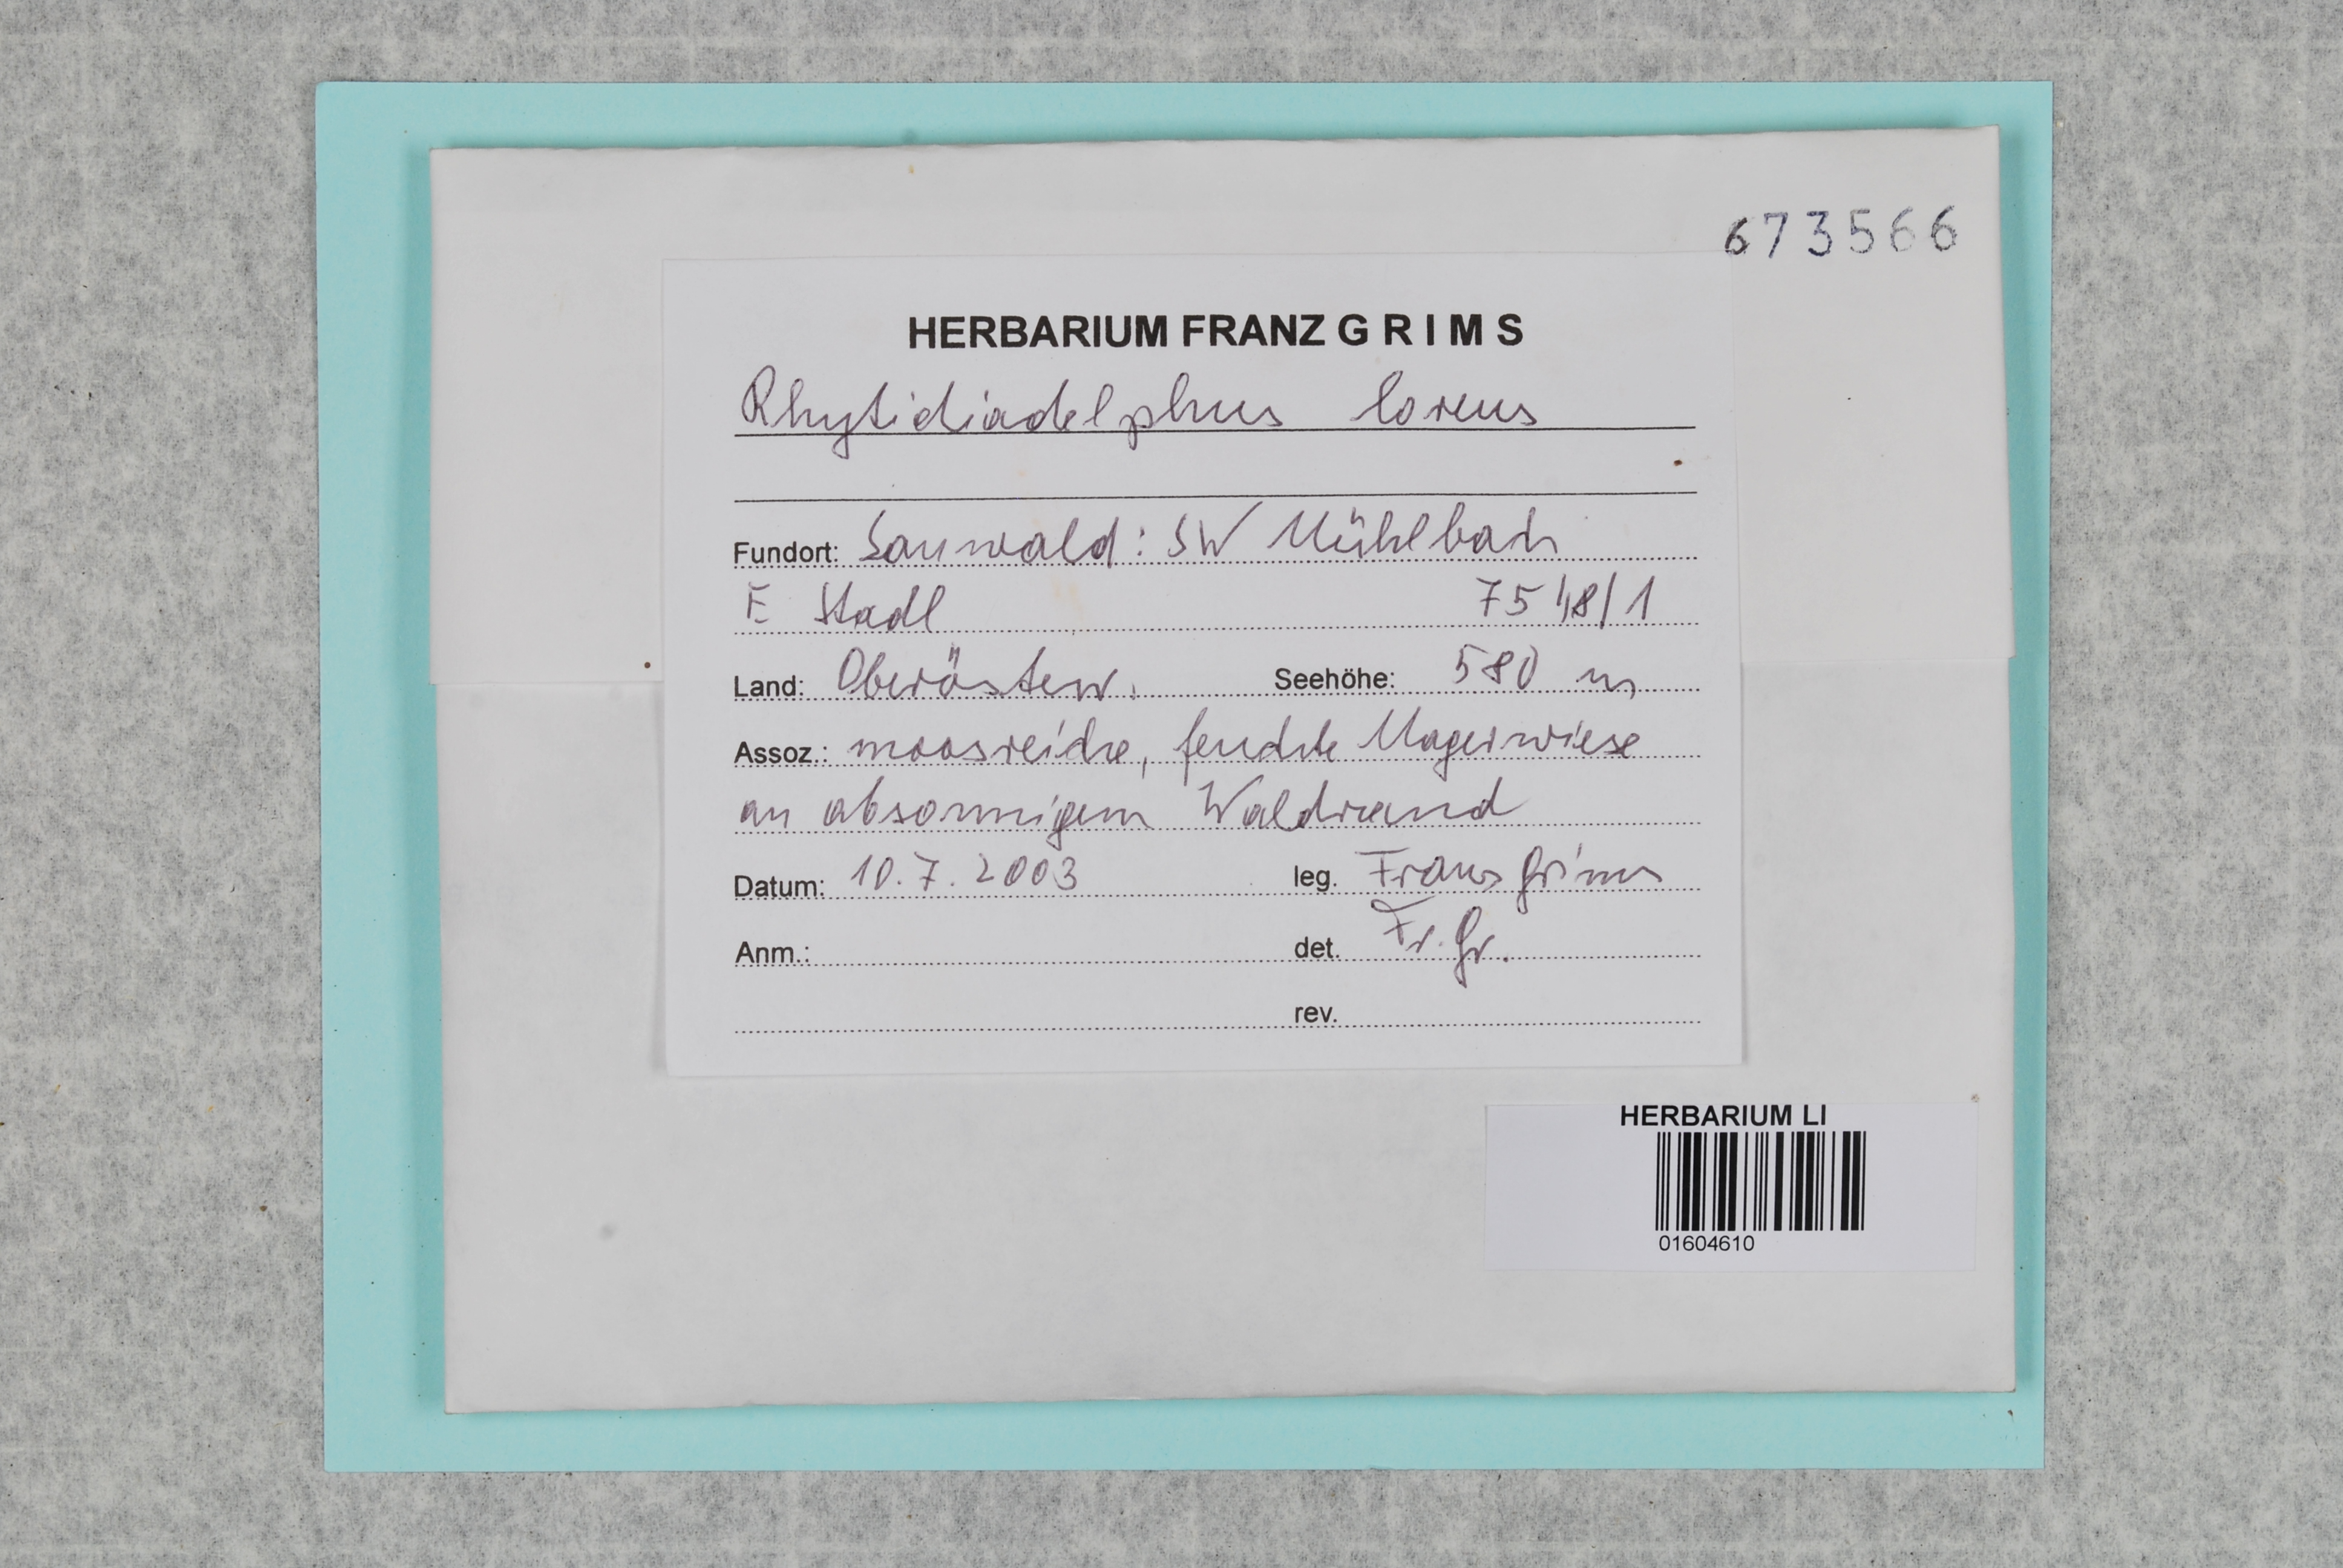 673566
HERBARIUM FRANZ G R I M S
Rhytidiadelphus loreus
Fundort: Sauwald: SW Mühlbach
E Stadl 7548/1
Land: Oberösterr. Seehöhe: 580 m
Assoz.: moosreiche, feuchte Magerwiese
an absonnigem Waldrand
Datum: 10.7.2003 leg. Franz Grims
Anm.: det. Fr. Gr.
rev.
HERBARIUM LI
01604610